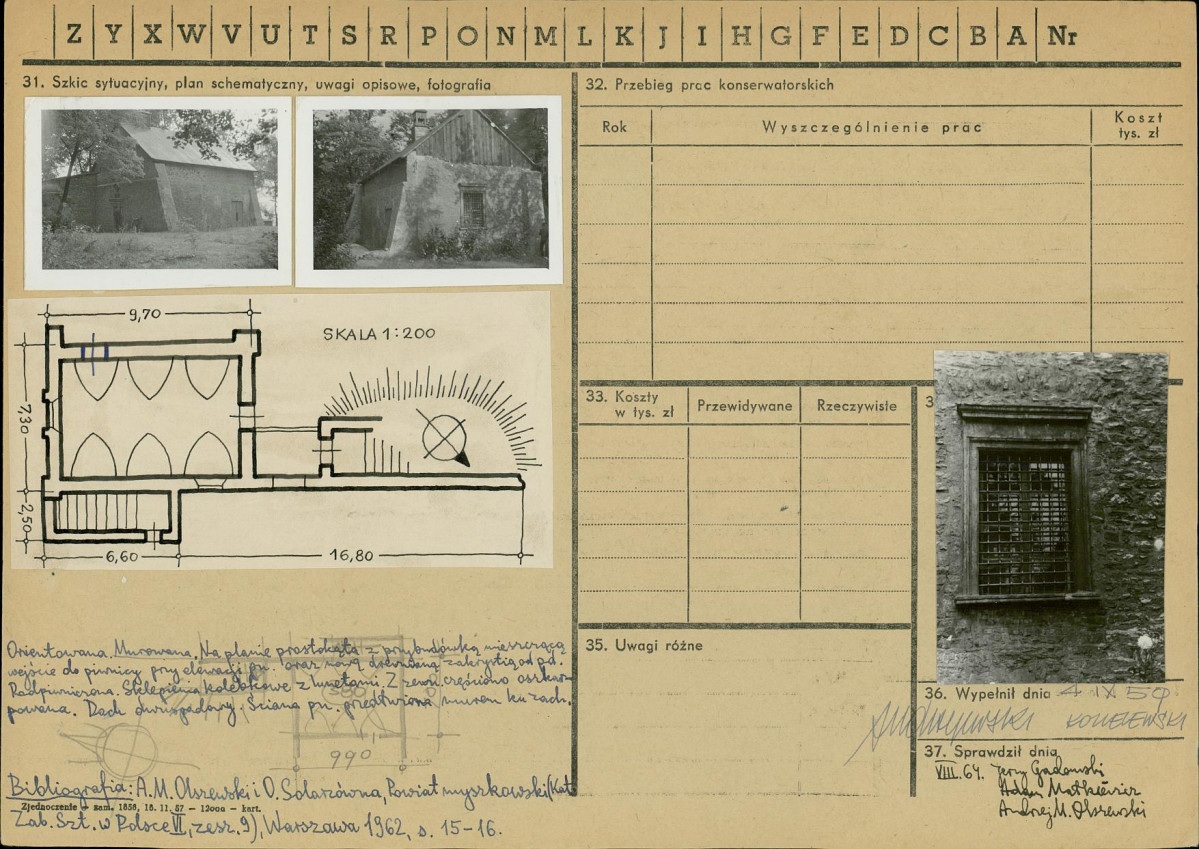 Z Y X W V U T S R P O N M L K J I H G F E D C B A Nr
31. Szkic sytuacyjny, plan schematyczny, uwagi opisowe, fotografia
SKALA 1:200
9,70
7,30
2,50
6,60
16,80
Orientowana. Murowana. Na planie prostokąta z przybudówką mieszczącą
wejście do piwnicy przy elewacji pn. oraz nową drewnianą zakrystią od pd.
Podpiwniczona. Sklepienia kolebkowe z lunetami. Z zewn. częściowo oszkar-
powana. Dach dwuspadowy. Ściana pn. przedłużona murem ku zach.
990
Bibliografia: A.M. Olszewski i O. Solarzówna, Powiat myszkowski (Kat.
Zjednoczenie – zam. 1858, 16. 11. 57 – 12000 – kart.
Zab. Szt. w Polsce VI, zesz. 9), Warszawa 1962, s. 15-16.
32. Przebieg prac konserwatorskich
Rok
Wyszczególnienie prac
Koszt
tys. zł
33. Koszty
w tys. zł
Przewidywane
Rzeczywiste
3
35. Uwagi różne
36. Wypełnił dnia 4 IX 59
37. Sprawdził dnia
VIII. 64. Jerzy Gadomski
Adam Małkiewicz
Andrzej M. Olszewski